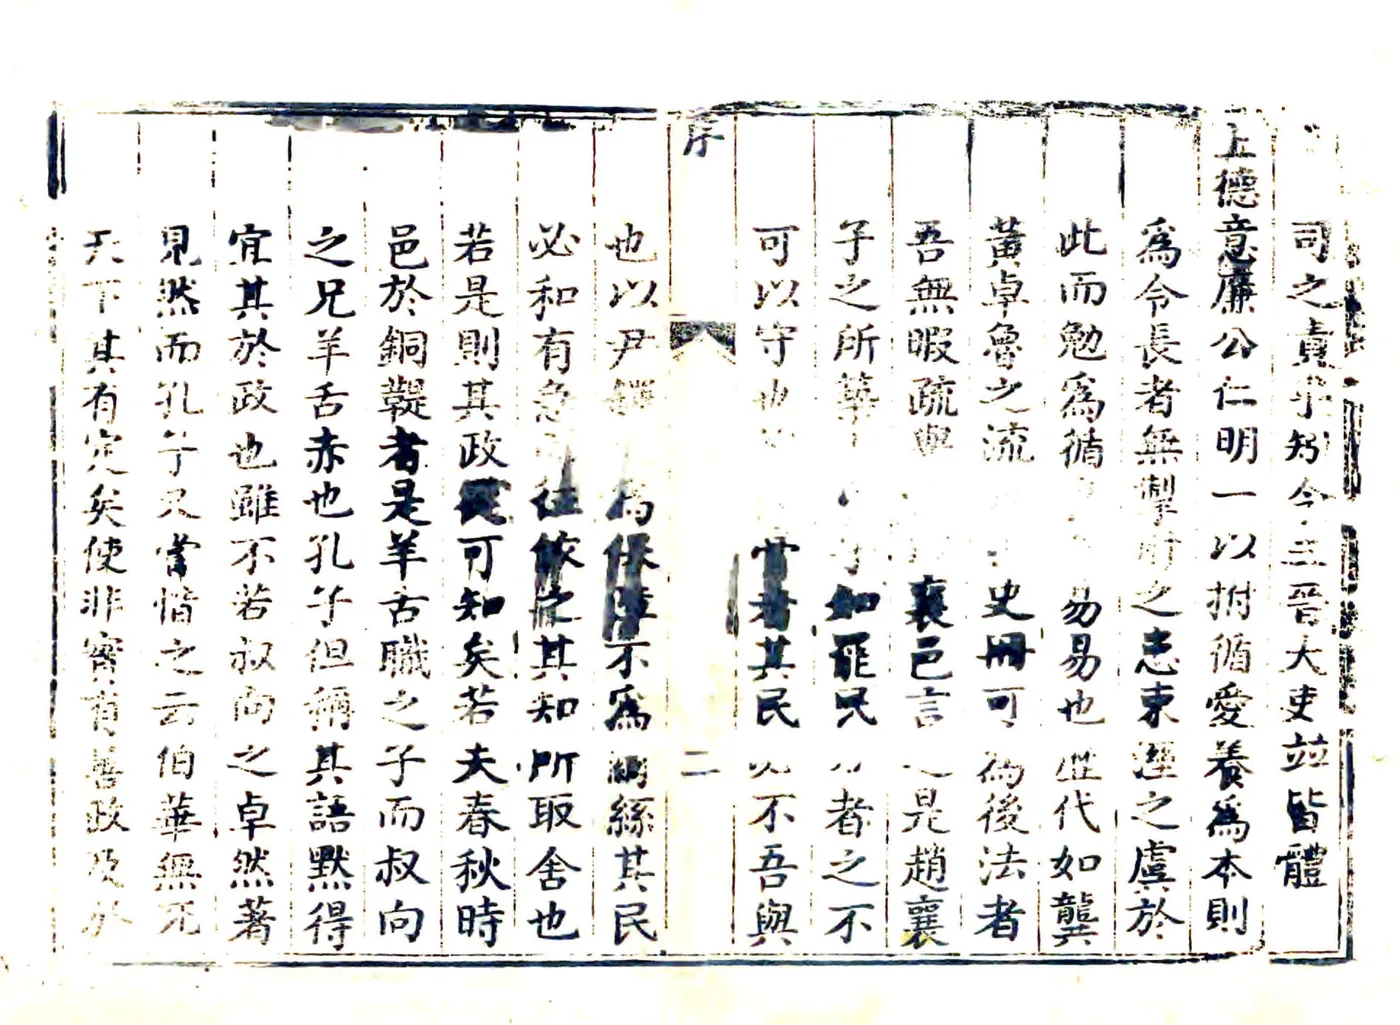 司之責乎矧今三晉大吏並皆體
上德意廉公仁明一以拊循愛養為本則
為令長者無掣肘之患束溼之虞於
此而勉為循易易也世代如龔
黃卓魯之流史冊可為後法者
吾無暇疏襄邑言之是趙襄
子之所子如罷民者之不
可以守也嘗者其民必不吾與
序
二
也以尹鐸為保障不為繭絲其民
必和有急往依之其知所取舍也
若是則其政可知矣若夫春秋時
邑於銅鞮者是羊舌職之子而叔向
之兄羊舌赤也孔子但稱其語默得
宜其於政也雖不若叔向之卓然著
見然而孔子又嘗惜之云伯華無死
天下其有定矣使非實有善政及於